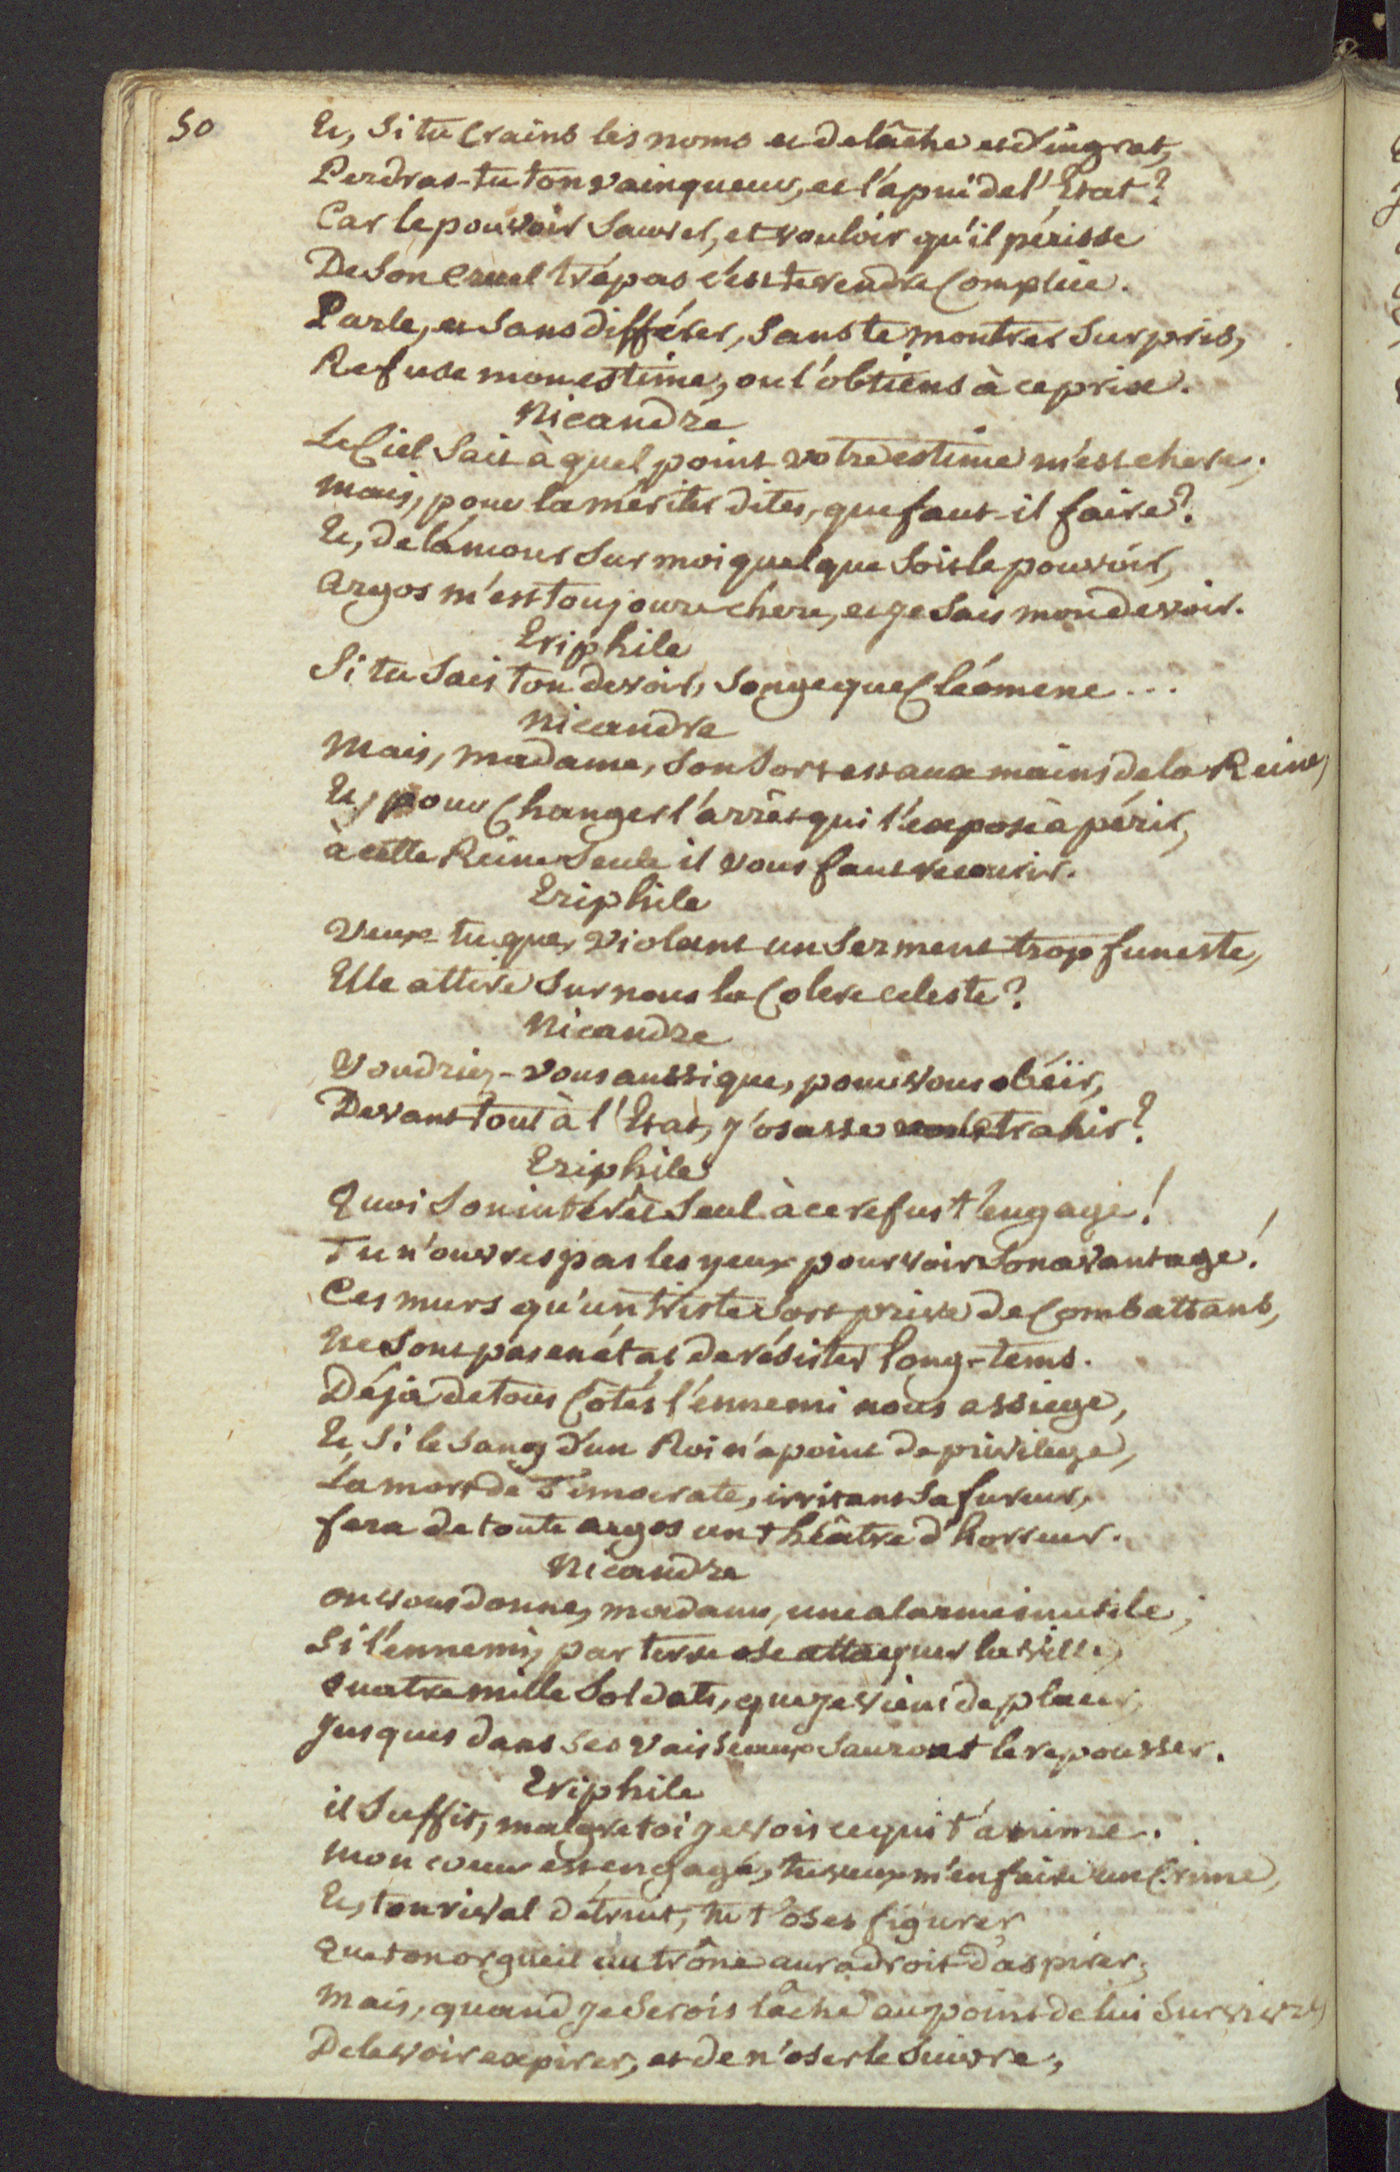 50
Et, Si tu Crains les noms et de lâche et d'ingrat,
Perdras-tu ton vainqueur, et l'apui de l'Etat?
Car le pouvoir Sauver, et vouloir qu'il périsse
De Son Cruel trépas c'est te rendre Complice.
Parle, et Sans différer, Sans te montrer Surpris,
Refuse mon estime, ou l'obtiens à ce prix.
Nicandre
Le Ciel Sait à quel point votre estime m'est chere;
Mais, pour la mériter dites, que faut-il faire?
Et, de l'amour Sur moi quel que Soit le pouvoir,
Argos m'est toujours chere, et je Sais mon devoir.
Eriphile
Si tu Sais ton devoir, Songe que Cléomene...
Nicandre
Mais, Madame, Son Sort est aux mains de la Reine,
Et, pour Changer l'arrêt qui l'expose à périr,
à cette Reine Seule il vous faut recourir.
Eriphile
Veux-tu que, violant un Serment trop funeste,
Elle attire Sur nous la Colere celeste?
Nicandre
Voudriez-vous aussi que, pour vous obéïr,
Devant tout à l'Etat, j'osasse le trahir?
Eriphile
Quoi Son intérêt Seul à ce refus t'engage!
Tu n'ouvres pas les yeux pour voir Son avantage!
Ces murs qu'un triste Sort prive de Combattans,
Ne Sont pas en état de résister long-tems.
Déja de tous Côtés l'ennemi nous assiege,
Et, Si le Sang d'un Roi n'a point de privilege,
La mort de Timocrate, irritant Sa fureur,
fera de toute argos un théâtre d'horreur.
Nicandre
on vous donne, madame, une alarme inutile;
Si l'ennemi, par terre ose attaquer la ville,
Quatre mille Soldats, que je viens de placer,
Jusques dans Ses vaisseaux Sauront le repousser.
Eriphile
il Suffit, malgre toi je vois ce qui t'anime.
Mon coeur est engagé, tu veux m'en faire un Crime,
Et, ton rival détruit, tu t'oses figurer
Que ton orgueil au trône aura droit d'aspirer;
Mais, quand je Serois lâche au point de lui Survivre,
De le voir expirer, et de n'oser le Suivre,